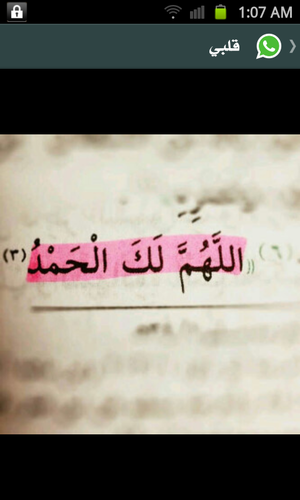 1:07 AM
قلبي
(٦) ((اللَّهُمَّ لَكَ الْحَمْدُ (٣)